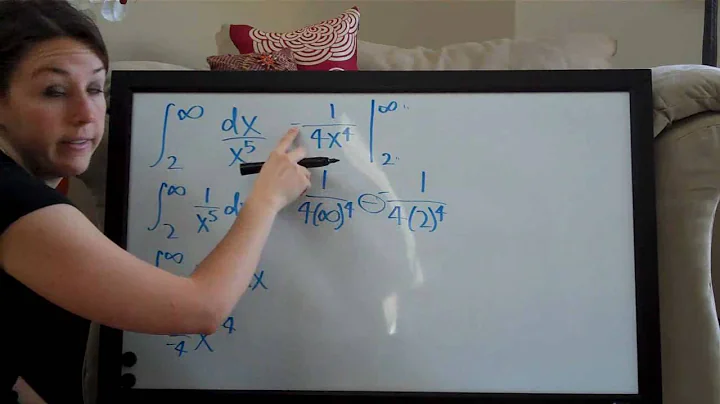 ∫₂^∞ dx/x⁵ -1/4x⁴ |₂^∞
∫₂^∞ 1/x⁵ d 1/4(∞)⁴ - -1/4(2)⁴
∫ ^∞ x
/-4 x ⁴